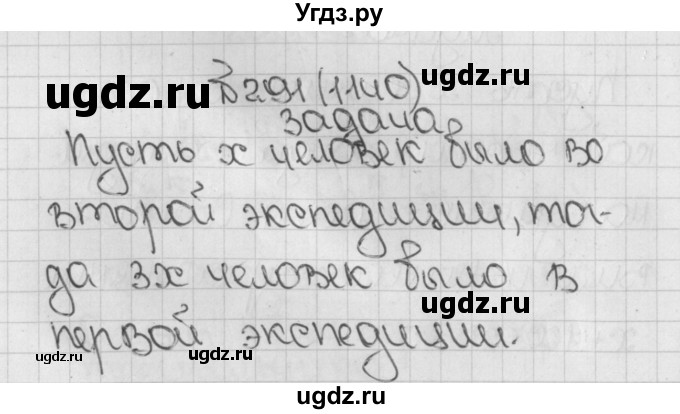 Угдз.ру
ugdz.ru
№291(1140)
ugdz.ru
задача.
Пусть x человек было во
ugdz.ru
второй экспедиции, тог-
да 3x человек было в
ugdz.ru
первой экспедиции.
ugdz.ru
ugdz.ru
ugdz.ru